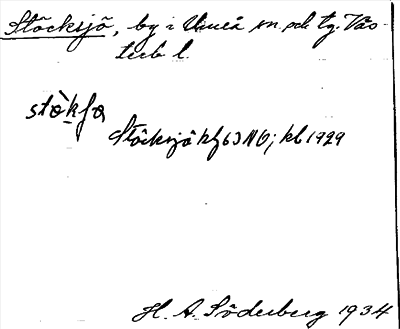 Stöcksjö, by i Umeå sn och tg. Väs-
terb l.
stö̀kʃø
Stöcksjö kf 63 NO; kb 1929
H. A. Söderberg 1934